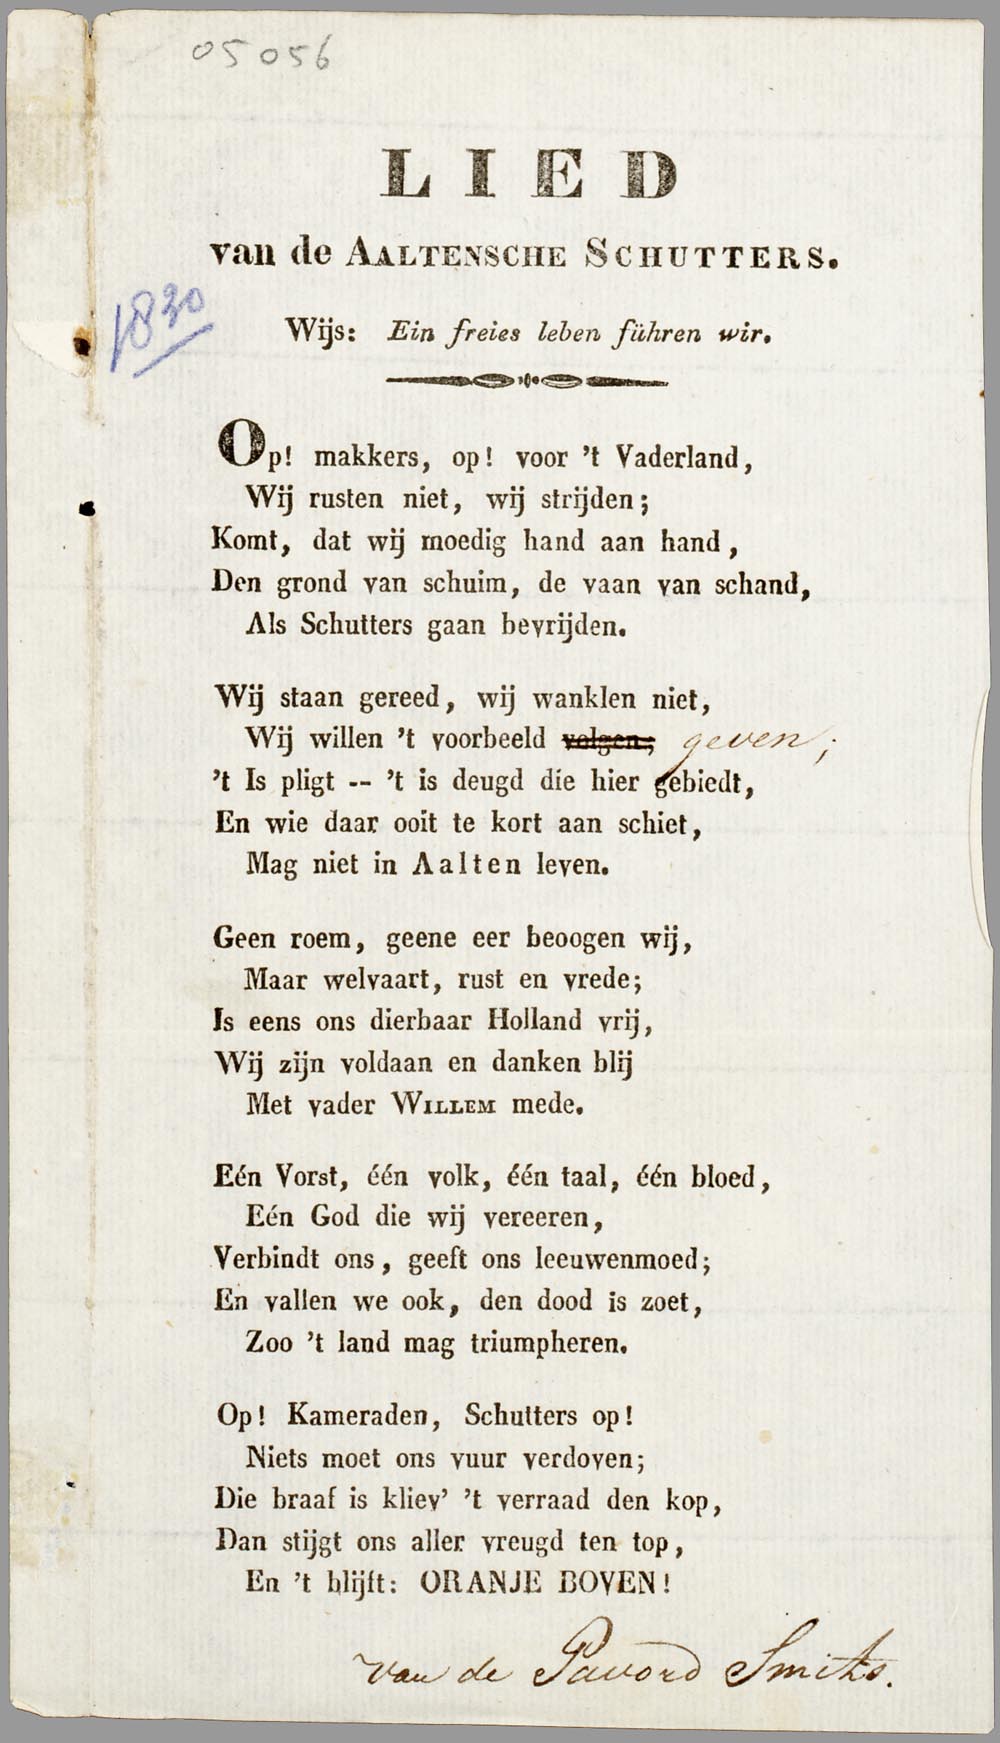 05056
LIED
van de AALTENSCHE SCHUTTERS.
1830
Wijs: Ein freies leben führen wir.
Op! makkers, op! voor 't Vaderland,
Wij rusten niet, wij strijden;
Komt, dat wij moedig hand aan hand,
Den grond van schuim, de vaan van schand,
Als Schutters gaan bevrijden.
Wij staan gereed, wij wanklen niet,
Wij willen 't voorbeeld volgen; geven;
't Is pligt -- 't is deugd die hier gebiedt,
En wie daar ooit te kort aan schiet,
Mag niet in Aalten leven.
Geen roem, geene eer beoogen wij,
Maar welvaart, rust en vrede;
Is eens ons dierbaar Holland vrij,
Wij zijn voldaan en danken blij
Met vader WILLEM mede.
Eén Vorst, één volk, één taal, één bloed,
Eén God die wij vereeren,
Verbindt ons, geeft ons leeuwenmoed;
En vallen we ook, den dood is zoet,
Zoo 't land mag triumpheren.
Op! Kameraden, Schutters op!
Niets moet ons vuur verdoven;
Die braaf is kliev' 't verraad den kop,
Dan stijgt ons aller vreugd ten top,
En 't blijft: ORANJE BOVEN!
van de Pavord Smits.